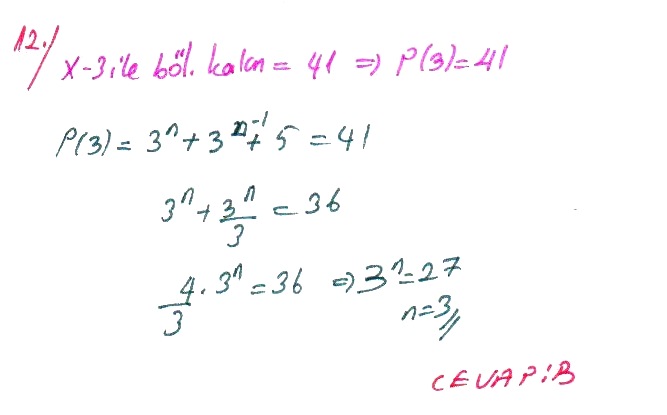 12.) x-3 ile böl. kalan = 41 ⇒ P(3)=41
P(3) = 3ⁿ + 3ⁿ⁻¹ + 5 = 41
3ⁿ + 3ⁿ/3 = 36
4/3 . 3ⁿ = 36 ⇒ 3ⁿ = 27
n=3//
CEVAP:B